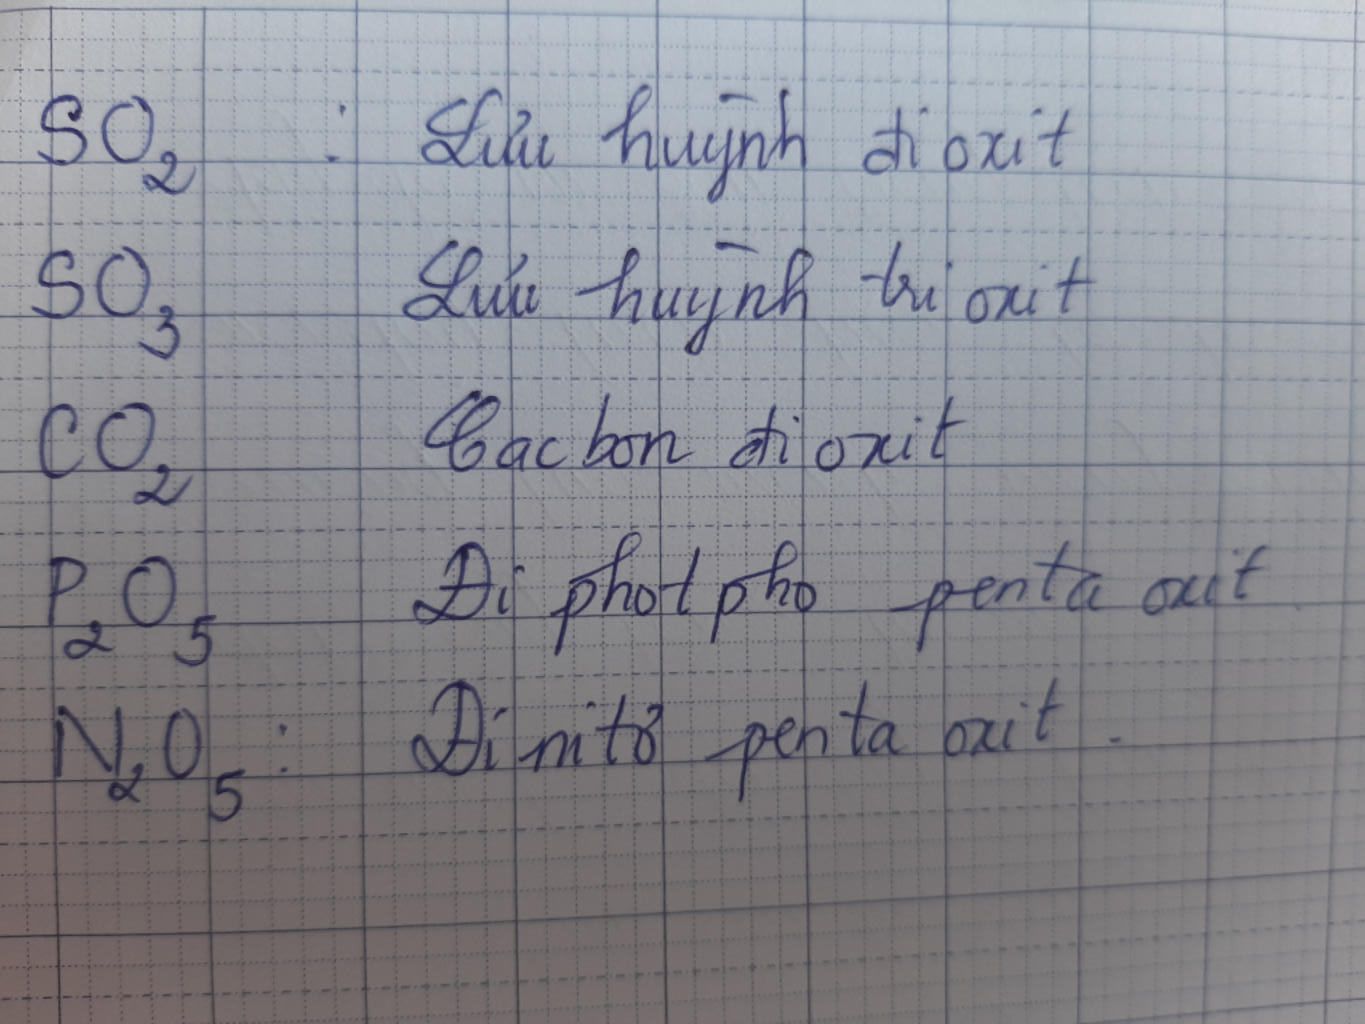 SO₂ : Lưu huỳnh đi oxit
SO₃ Lưu huỳnh tri oxit
CO₂ Cacbon đi oxit
P₂O₅ Đi photpho penta oxit
N₂O₅ : Đi nitơ penta oxit.